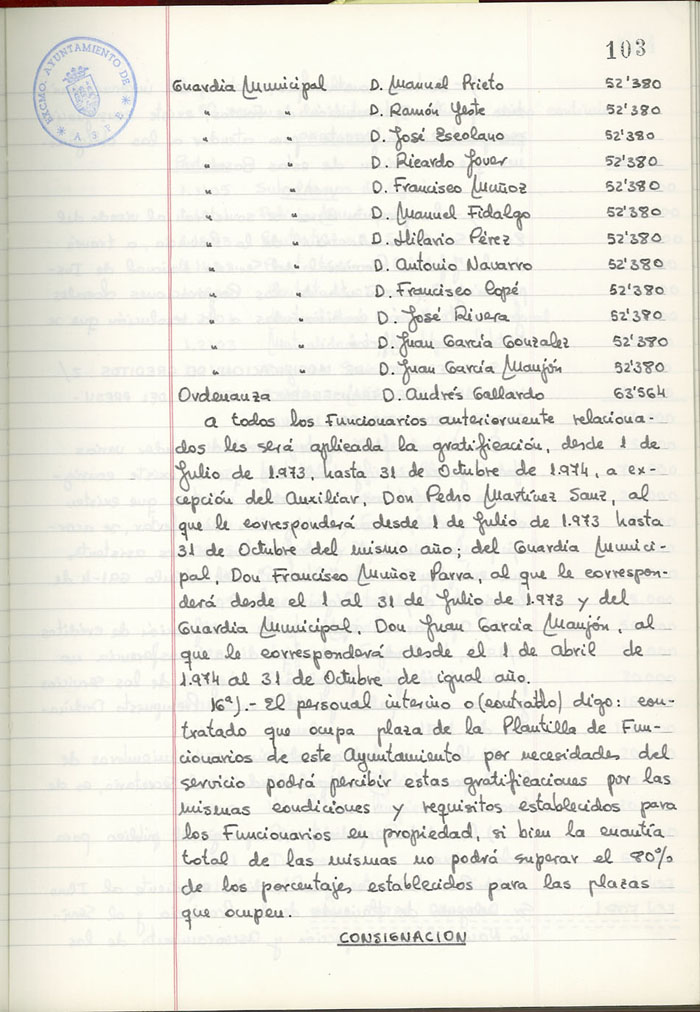 103
EXCMO. AYUNTAMIENTO DE
* ASPE *
Guardia Municipal D. Manuel Prieto 52'380
" " D. Ramón Yeste 52'380
" " D. José Escolano 52'380
" " D. Ricardo Jover 52'380
" " D. Francisco Muñoz 52'380
" " D. Manuel Fidalgo 52'380
" " D. Hilario Pérez 52'380
" " D. Antonio Navarro 52'380
" " D. Francisco Copé 52'380
" " D. José Rivera 52'380
" " D. Juan García Gonzalez 52'380
" " D. Juan García Manjón 52'380
Ordenanza D. Andrés Gallardo 63'564
a todos los Funcionarios anteriormente relaciona-
dos les será aplicada la gratificación, desde 1 de
Julio de 1.973, hasta 31 de Octubre de 1.974, a ex-
cepción del Auxiliar, Don Pedro Martínez Sanz, al
que le corresponderá desde 1 de Julio de 1.973 hasta
31 de Octubre del mismo año; del Guardia Munici-
pal, Don Francisco Muñoz Parra, al que le correspon-
derá desde el 1 al 31 de Julio de 1.973 y del
Guardia Municipal, Don Juan García Manjón, al
que le corresponderá desde el 1 de abril de
1.974 al 31 de Octubre de igual año.
16ª).- El personal interino o (contratdo) digo: con-
tratado que ocupa plaza de la Plantilla de Fun-
cionarios de este Ayuntamiento por necesidades del
servicio podrá percibir estas gratificaciones por las
mismas condiciones y requisitos establecidos para
los Funcionarios en propiedad, si bien la cuantía
total de las mismas no podrá superar el 80%
de los porcentajes establecidos para las plazas
que ocupen.
CONSIGNACION